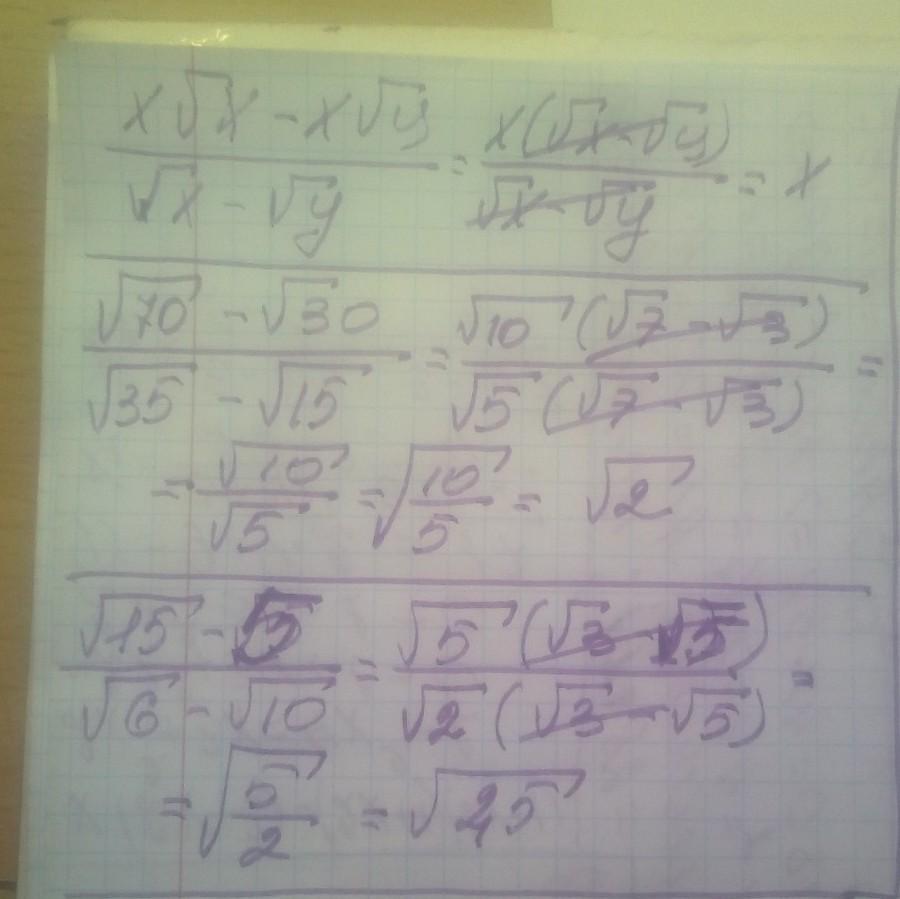 (x√x - x√y)/(√x - √y) = x(√x - √y)/(√x - √y) = x
(√70 - √30)/(√35 - √15) = √10(√7 - √3)/(√5(√7 - √3)) =
= √10/√5 = √(10/5) = √2
(√15 - 5)/(√6 - √10) = √5(√3 - √5)/(√2(√3 - √5)) =
= √(5/2) = √2,5